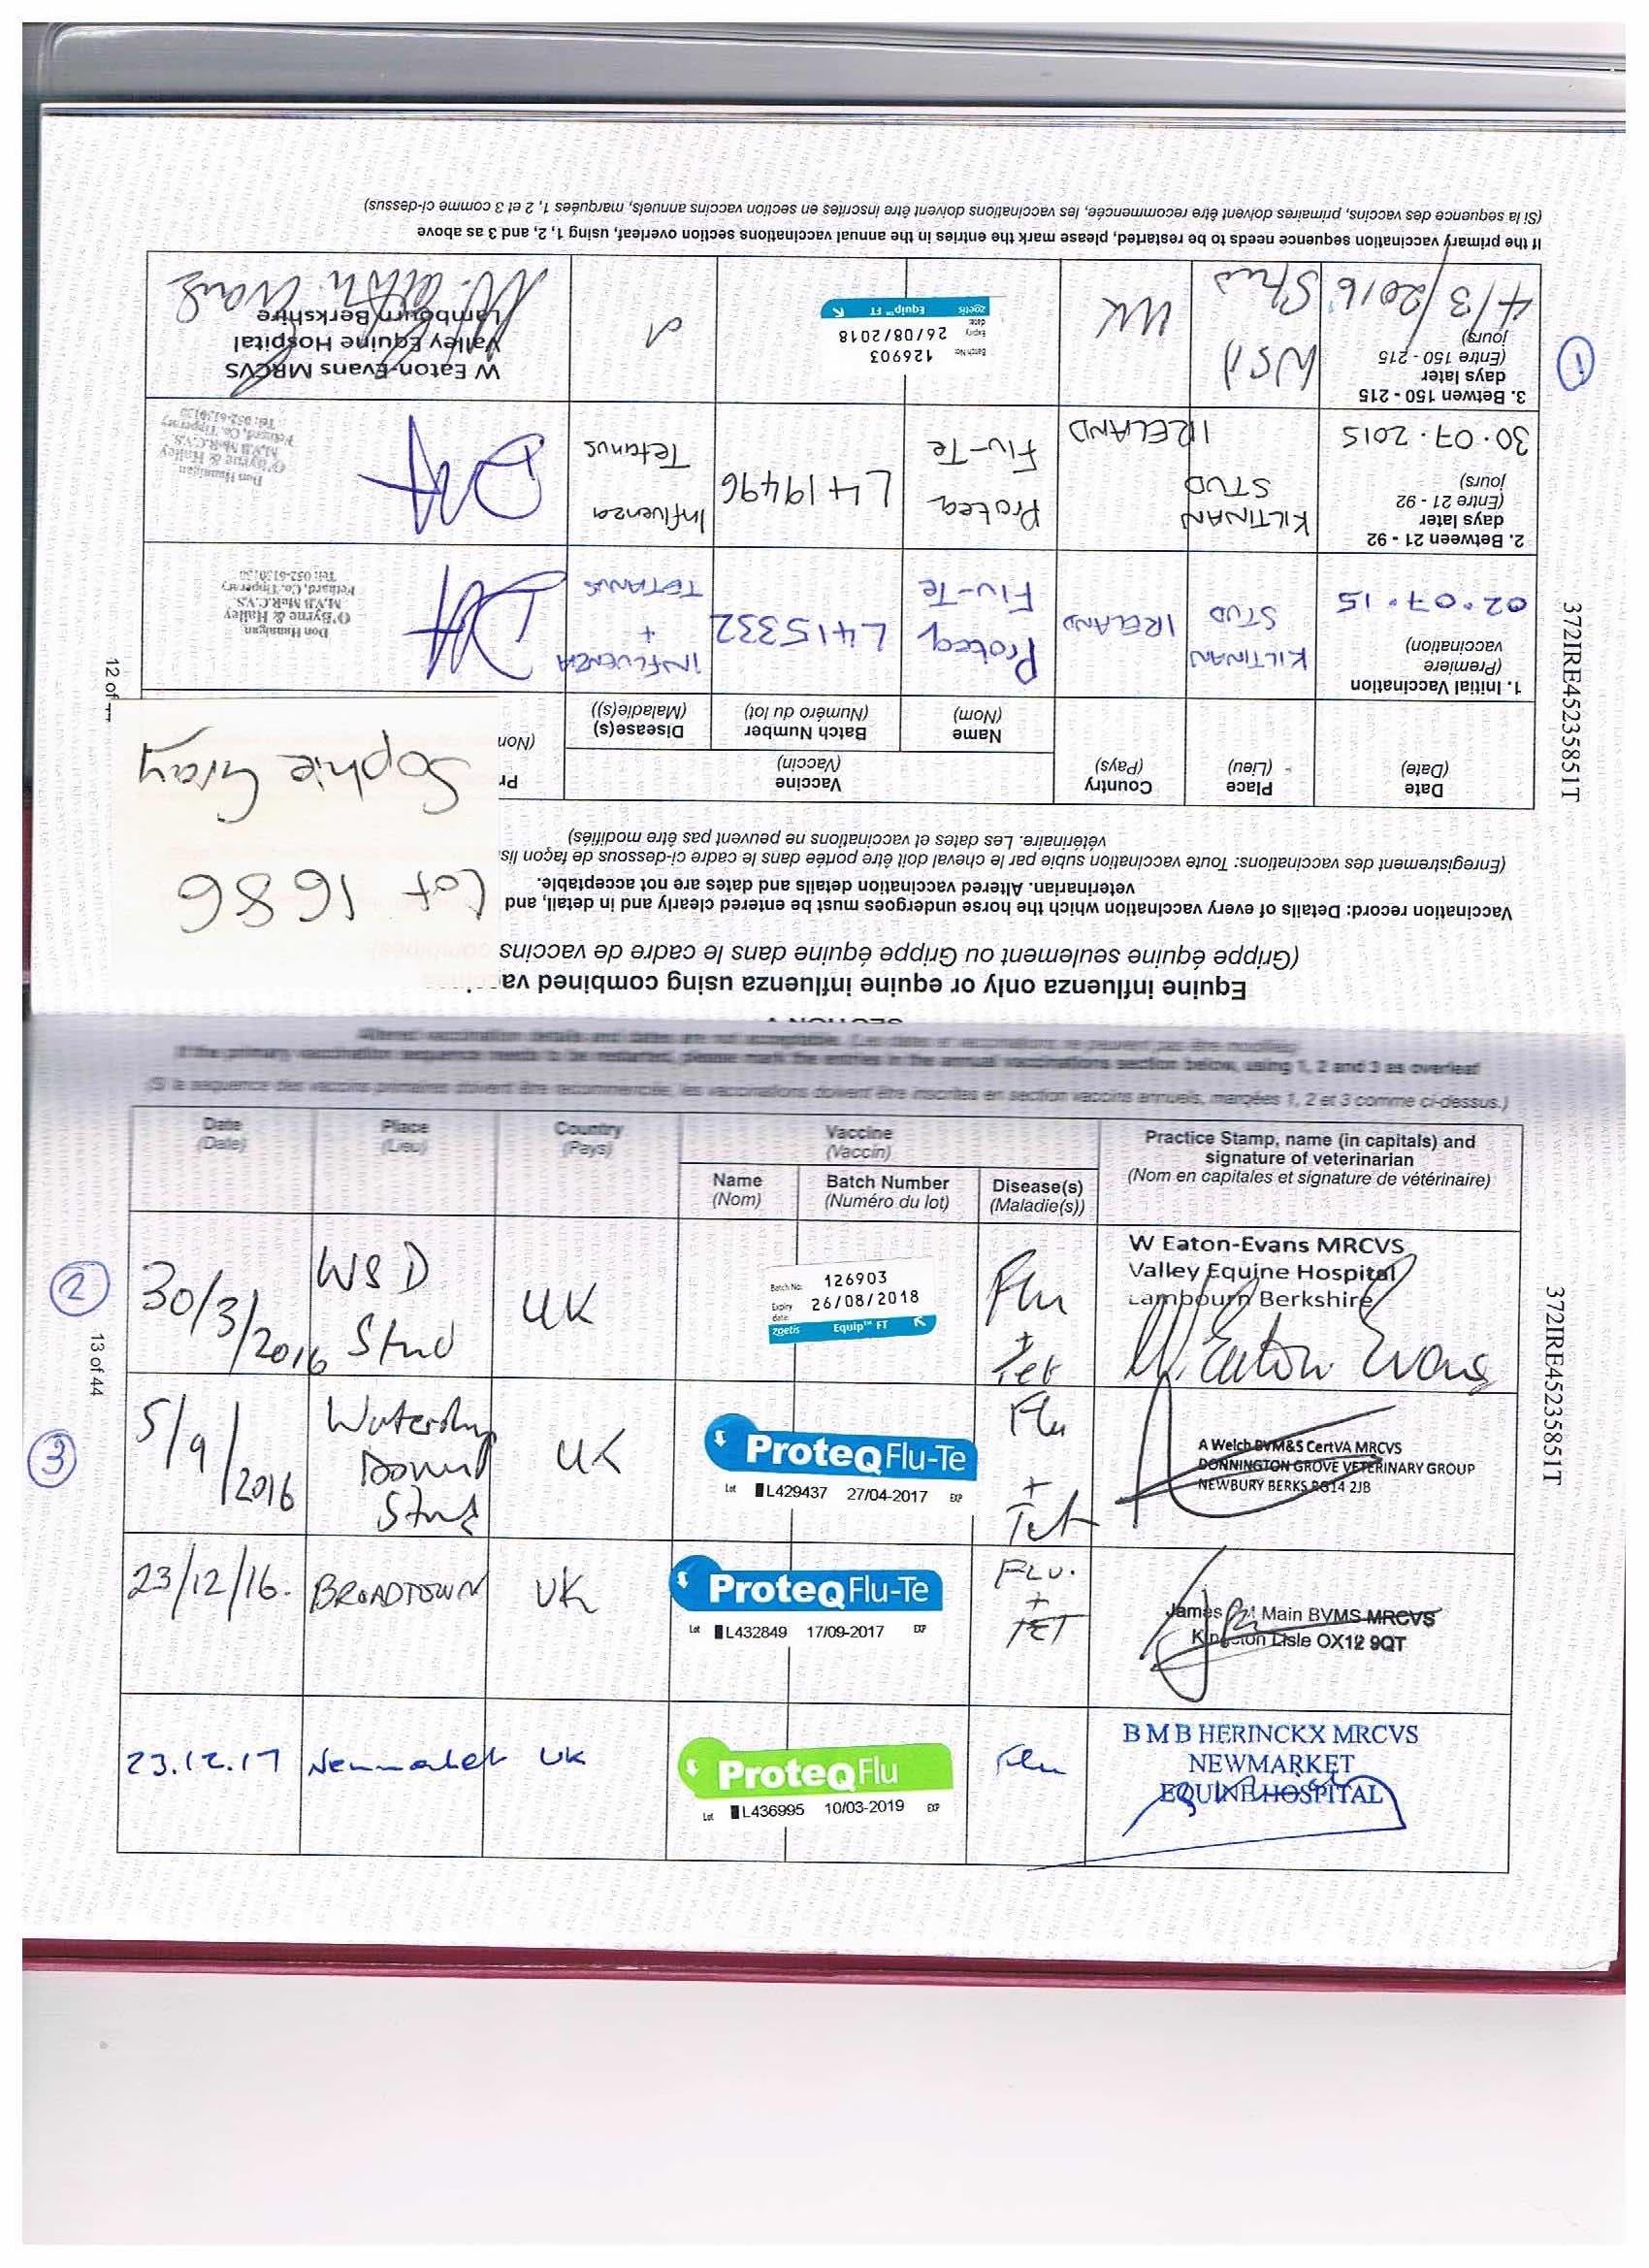 Equine influenza only or equine influenza using combined
(Grippe équine seulement ou Grippe équine dans le cadre de vaccins
Vaccination record: Details of every vaccination which the horse undergoes must be entered clearly and in detail, and
veterinarian. Altered vaccination details and dates are not acceptable.
(Enregistrement des vaccinations: Toute vaccination subie par le cheval doit être portée dans le cadre ci-dessous de façon
vétérinaire. Les dates et vaccinations ne peuvent pas être modifiés)
Lot 1686
Sophie Gray
Date
(Date)
Place
(Lieu)
Country
(Pays)
Vaccine
(Vaccin)
Name
(Nom)
Batch Number
(Numéro du lot)
Disease(s)
(Maladie(s))
1. Initial Vaccination
(Première
vaccination)
02.07.15
KILTINAN
STUD
IRELAND
Proteq
Flu-Te
L415332
INFLUENZA
+
TETANUS
Don Hannigan
O'Byrne & Halley
M.V.B MeR.C.V.S.
Fethard, Co. Tipperary
Tel: 052-6130130
2. Between 21 - 92
days later
(Entre 21 - 92
jours)
30.07.2015
KILTINAN
STUD
IRELAND
Proteq
Flu-Te
L419496
Influenza
Tetanus
Don Hannigan
O'Byrne & Halley
M.V.B MeR.C.V.S.
Fethard, Co. Tipperary
Tel: 052-6130130
1
3. Betwen 150 - 215
days later
(Entre 150 - 215
jours)
4/3/2016
WSD
Stud
UK
Batch No: 126903
Expiry date: 26/08/2018
zoetis Equip™ FT
W Eaton-Evans MRCVS
Valley Equine Hospital
Lambourn Berkshire
W. Eaton Evans
If the primary vaccination sequence needs to be restarted, please mark the entries in the annual vaccinations section overleaf, using 1, 2, and 3 as above
(Si la séquence des vaccins, primaires doivent être recommencée, les vaccinations doivent être inscrites en section vaccins annuels, marquées 1, 2 et 3 comme ci-dessus)
12 of
372IRE45235851T
Altered vaccination details and dates are not acceptable.
If the primary vaccination sequence needs to be restarted, please mark the entries in the annual vaccinations section below, using 1, 2 and 3 as overleaf
(Si la séquence des vaccins primaires doivent être recommencée, les vaccinations doivent être inscrites en section vaccins annuels, marqées 1, 2 et 3 comme ci-dessus.)
Date
(Date)
Place
(Lieu)
Country
(Pays)
Vaccine
(Vaccin)
Practice Stamp, name (in capitals) and
signature of veterinarian
(Nom en capitales et signature de vétérinaire)
Name
(Nom)
Batch Number
(Numéro du lot)
Disease(s)
(Maladie(s))
2
30/3/2016
WSD
Stud
UK
Batch No: 126903
Expiry date: 26/08/2018
zoetis Equip™ FT
Flu
+
Tet
W Eaton-Evans MRCVS
Valley Equine Hospital
Lambourn Berkshire
W. Eaton Evans
3
5/9/2016
Watership
Down
Stud
UK
ProteqFlu-Te
Lot L429437 27/04-2017 EXP
Flu
+
Tet
A Welch BVM&S CertVA MRCVS
DONNINGTON GROVE VETERINARY GROUP
NEWBURY BERKS RG14 2JB
23/12/16.
BROADTOWN
UK
ProteqFlu-Te
Lot L432849 17/09-2017 EXP
FLU.
+
TET
James Main BVMS MRCVS
Kingston Lisle OX12 9QT
23.12.17
Newmarket
UK
ProteqFlu
Lot L436995 10/03-2019 EXP
Flu
B M B HERINCKX MRCVS
NEWMARKET
EQUINE HOSPITAL
13 of 44
372IRE45235851T